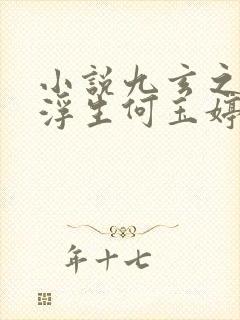 小説九玄之
浮生何玉婷
年十七